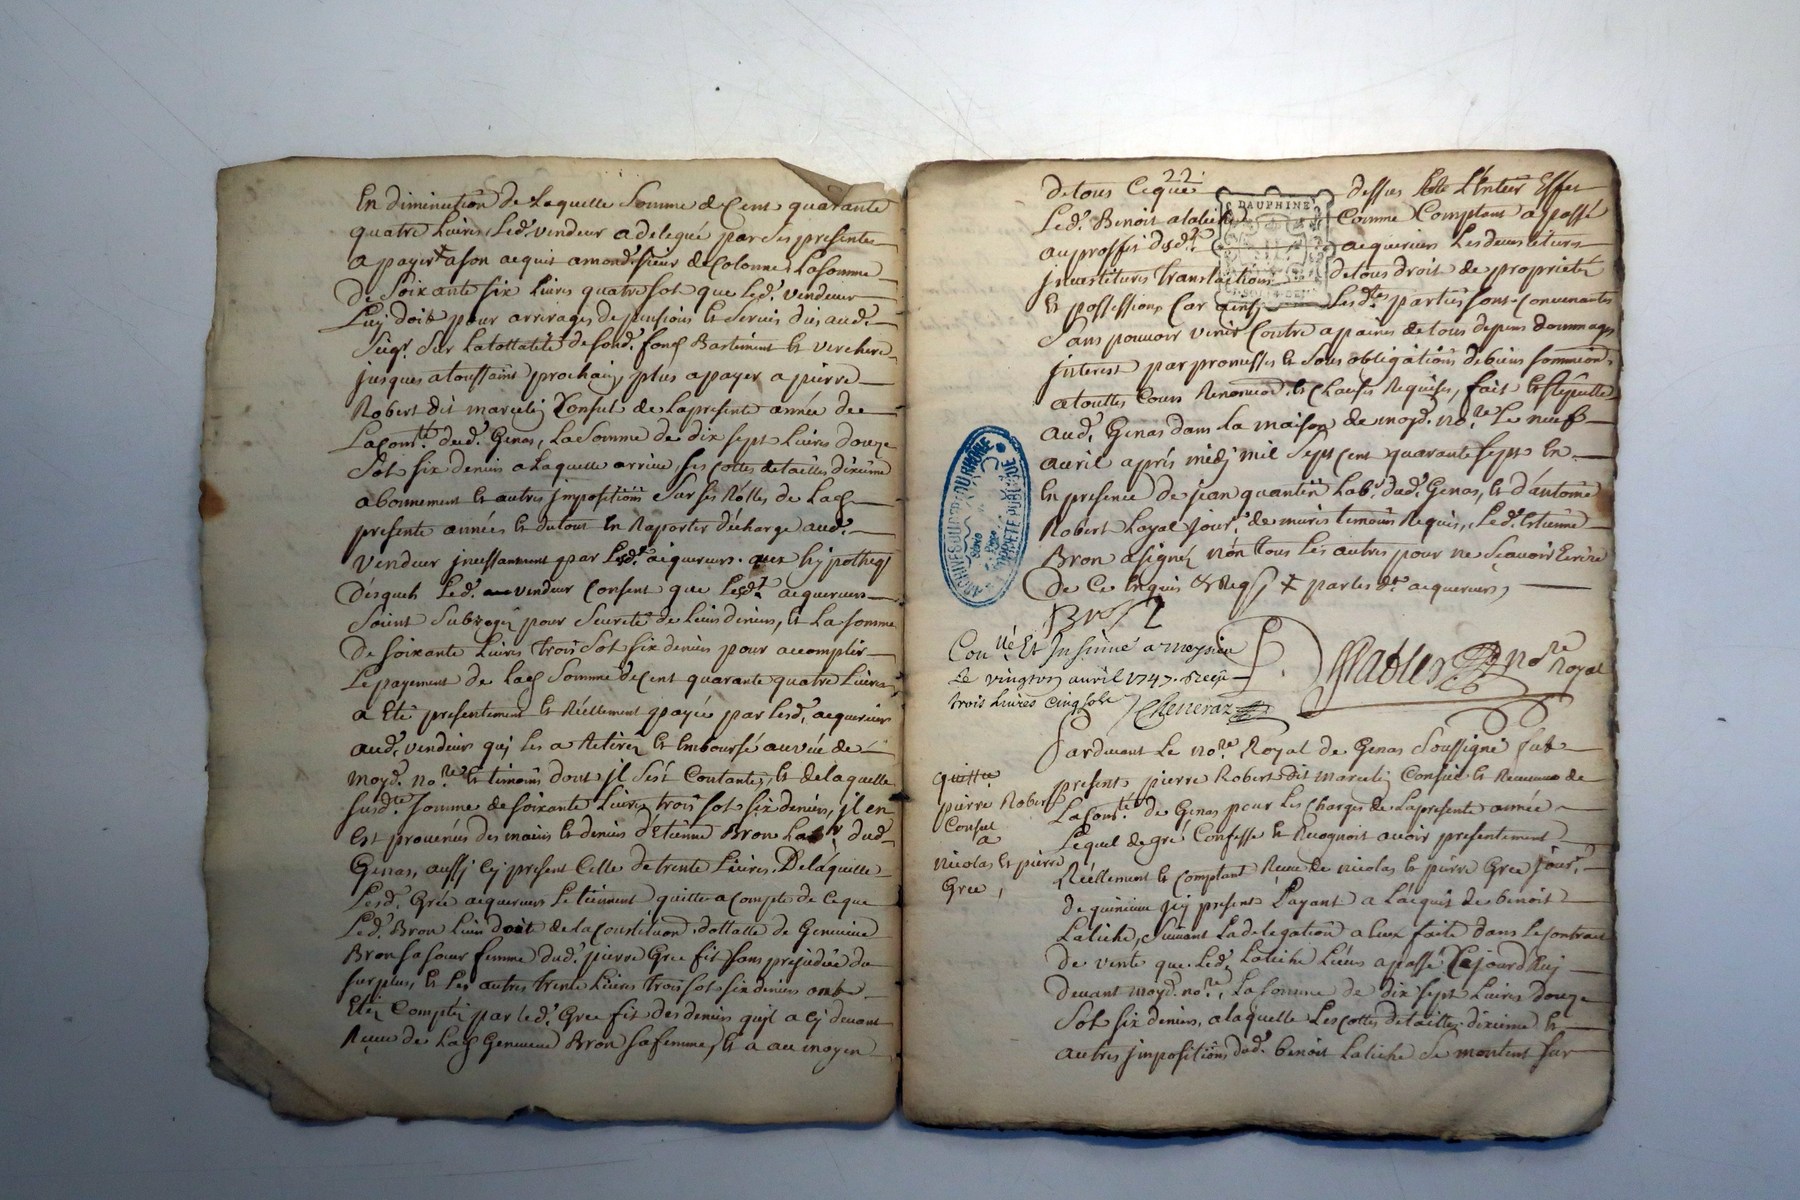 En diminution de Laquelle Somme de Cent quarante
quatre Livres, Led. vendeur a delegué par ses presentes
a payer + a son acquit a mond. sieur de Colonnes La somme
De Soixante six Livres quatre sol que Led. vendeur
Luy doit pour arrirages de pensions et servis dûs aud.
Sieg.r Sur La tottalité de fond. fond Bastiment et verchere
jusques a toussaint prochain, plus a payer a pierre
Robert dit marcelin Consul de La presente année de
La com.té dud. Genas, La Somme de dix sept Livres douze
Sol six deniers a Laquelle arrive ses cottes de tailles dixieme
abonnement et autres jmpositions Sur les Rolles de Lad.
presente année et du tout En Raporter décharge aud.
vendeur jncessamment par Lesd. acquereurs. aux hypotheq
Desquels Led. vendeur Consent que Lesd.t acquereurs
Soient Subrogez pour Seureté de Leurs deniers, et La somme
de soixante Livres trois Sol six deniers pour accomplir
Le payement de Lad. Somme de Cent quarante quatre Livres
a Eté presentement et Réellement payée par Lesd. acquereurs
aud. vendeur quj Les a Retirez et Emboursé au véu de
moyd. no.re et temoins dont jl s'est Contanté, et de laquelle
susd.te somme de soixante Livres trois sol six deniers, jl en
est provenûs des mains et deniers d'Etienne Bron Lab.r dud.
Genas, aussj cy present Celle de trente Livres, De Laquelle
Lesd. Gree acquereurs Le tiennent quitte a compte de ce que
Led. Bron Leur doit de la Constitution dottalle de Genevieve
Bron sa soeur femme dud. pierre Gree fils sans prejudice du
surplus, et Les autres trente Livres trois sol six deniers ont
Eté Comptés par led. Gree fils des deniers qu'jl a cy devant
Reçeu de Lad. Genevieve Bron sa femme, et a au moyen
de tous Ceque dessus Entier Effet
Led. Benoit a Laliche Comme Comptant a passé
au proffit dusd.ts acquereurs Lesdevestitures
jnvestitures translactions de tous droit de proprieté
et possessions, Car ainsj Lesd.tes parties sont Convenantes
Sans pouvoir venir Contre a paines de tous depens dommages
jnterest par promesses et Sous obligations de biens
a touttes Cours Renonciõn et clauses Requises, fait et stipullé
aud. Genas dans La maison de moyd. no.re Le neuf
avril après midj mil sept cent quarante sept En
En presence de jean quantin Lab.r dud. Genas, et d'antoine
Robert Loyal jour.r de muris temoins Requis, Led. Estienne
Bron a signé, non tous Les autres pour ne Sçavoir Ecrire
de Ce Enquis et Req + par les d.t acquereurs,
Bron
DAUPHINE
ARCHIVES DU DEP.T DU RHONE
PROPRIETE PUBLIQUE
Con.llé Et Insinué a meysieu
Le vingt avril 1747. Reçu
trois Livres cinq sols Cheneraz
no.re Royal
Pardevant Le no.re Royal de Genas Soussigné fut
quitte
pierre Robert
Consul
a
nicolas et pierre
Gree,
present pierre Robert dit marcelin Consul et Receveur de
La Com.té de Genas pour Les charges de La presente année
Lequel de gré Confesse et Recognoit avoir presentement
Réellement et Comptant Reçeu de nicolas et pierre Gree jour.r
de quincieu jcy present Payant a L'acquit de benoit
Laliche, Suivant La delegation a Eux faite dans Le Contract
de vente que Led. Laliche Leur a passé Cejourd'huj
devant moyd. no.re, La Somme de dix sept Livres douze
Sol six deniers, a laquelle Les cottes de tailles dixieme et
autres jmpositions dud. benoit Laliche Se montent sur